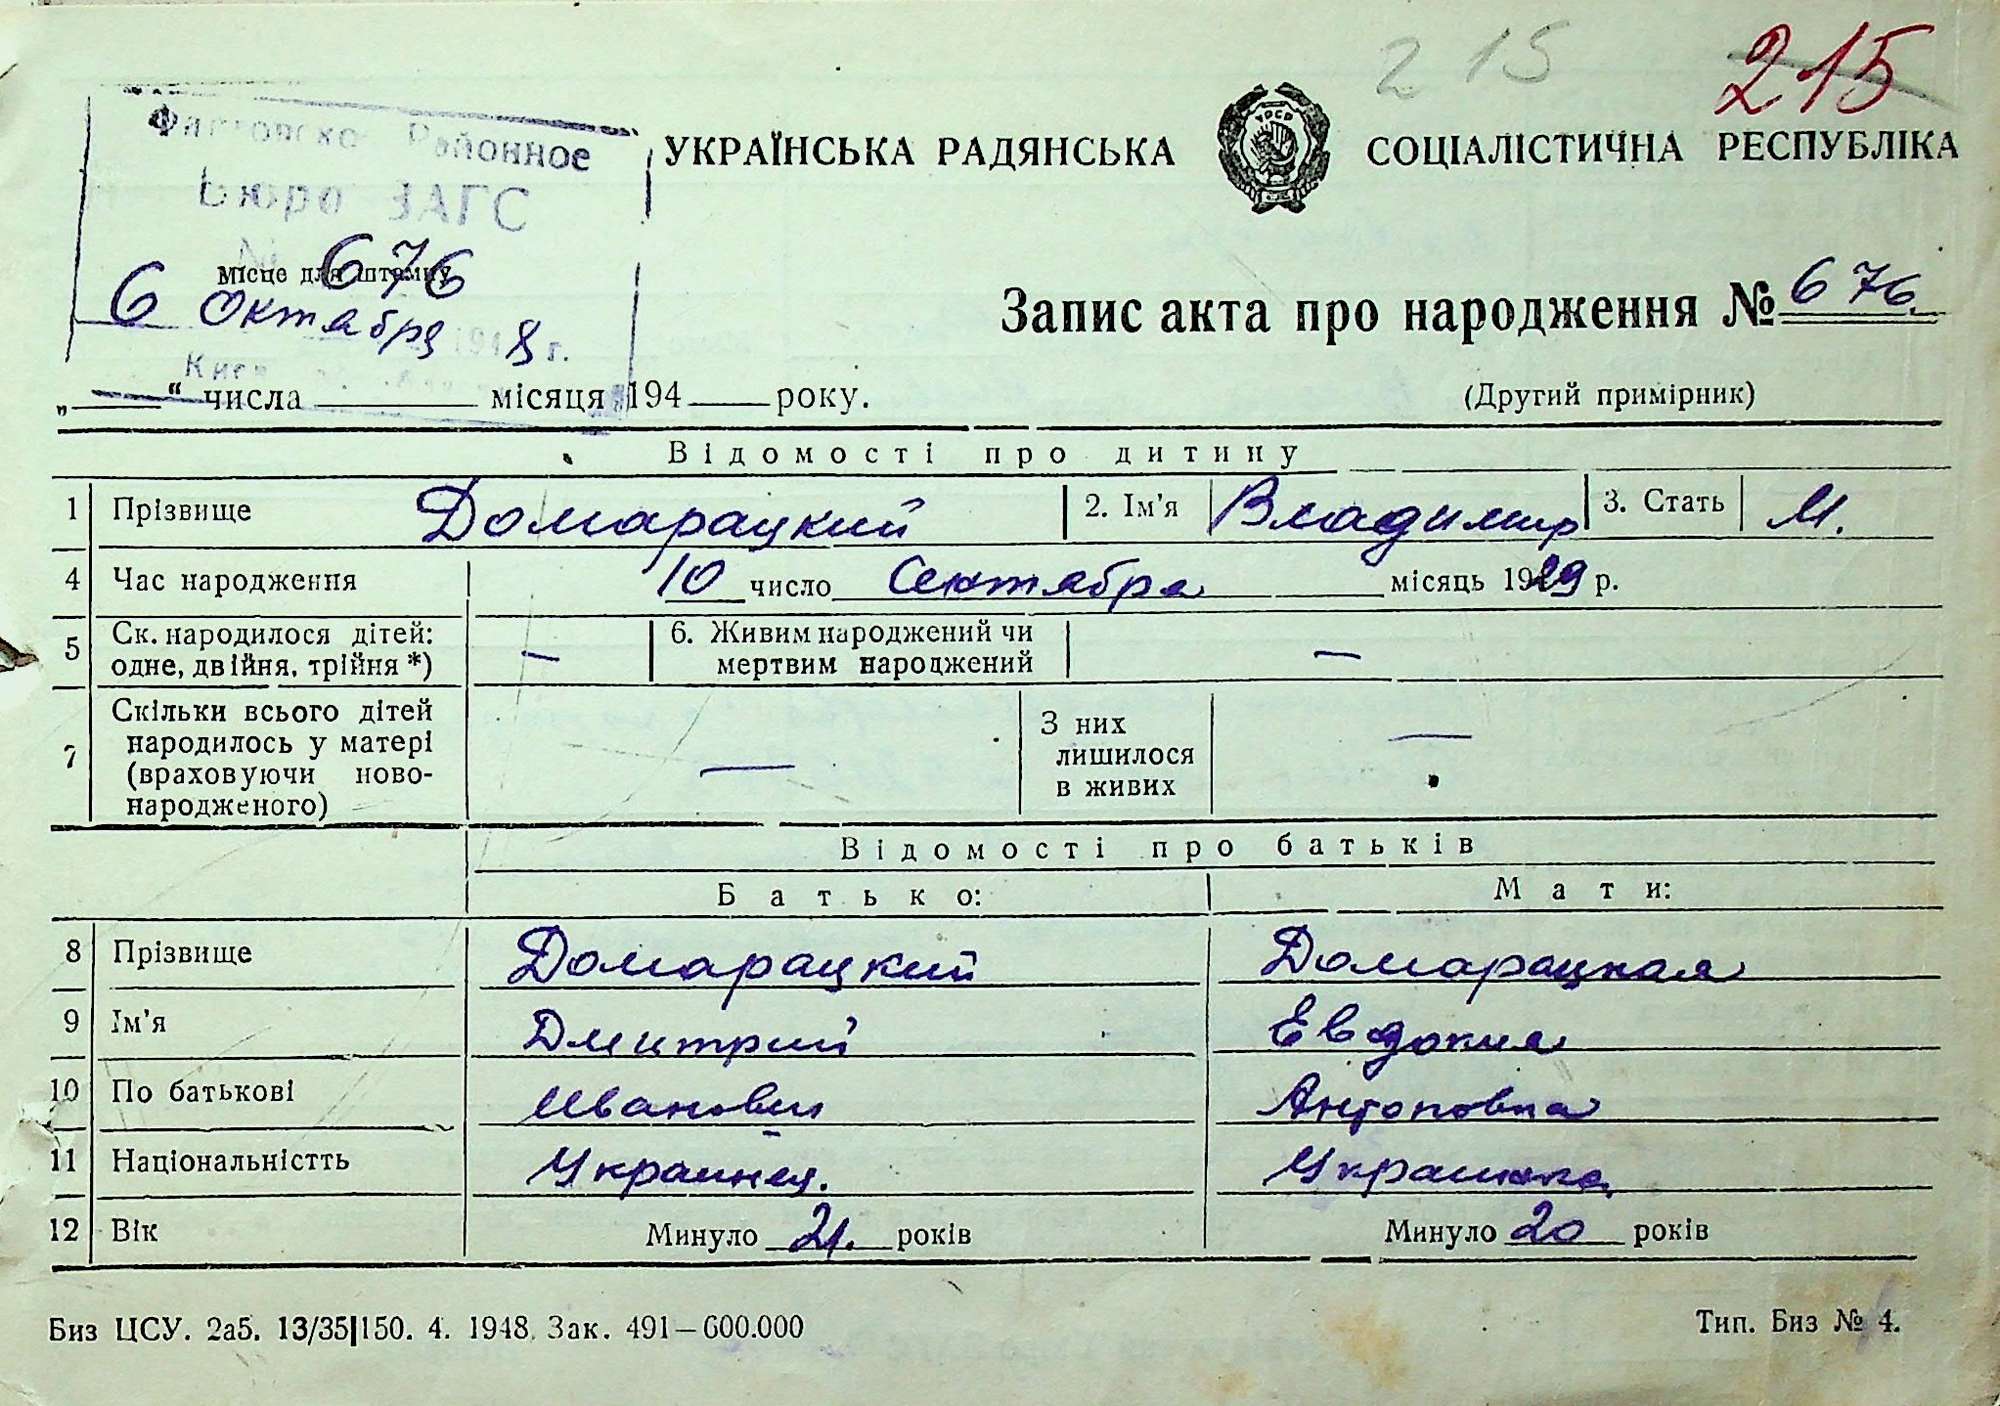 215 215
Районное
Бюро ЗАГС
УКРАЇНСЬКА РАДЯНСЬКА СОЦІАЛІСТИЧНА РЕСПУБЛІКА
УРСР
№ 676
місце для штампу
6 Октября 194 8 г.
Запис акта про народження № 676.
„ “ числа місяця 194 року.
(Другий примірник)
Відомості про дитину
1 Прізвище Домарацкий 2. Ім'я Владимир 3. Стать М.
4 Час народження 10 число Сентября місяць 1929 р.
5 Ск. народилося дітей: одне, двійня, трійня *) — 6. Живим народжений чи мертвим народжений —
7 Скільки всього дітей народилось у матері (враховуючи ново-народженого) — З них лишилося в живих —
Відомості про батьків
Батько: Мати:
8 Прізвище Домарацкий Домарацкая
9 Ім'я Дмитрий Евдокия
10 По батькові Иванович Антоновна
11 Національністть Украинец. Украинка
12 Вік Минуло 21. років Минуло 20 років
Биз ЦСУ. 2а5. 13/35|150. 4. 1948. Зак. 491—600.000 Тип. Биз № 4.